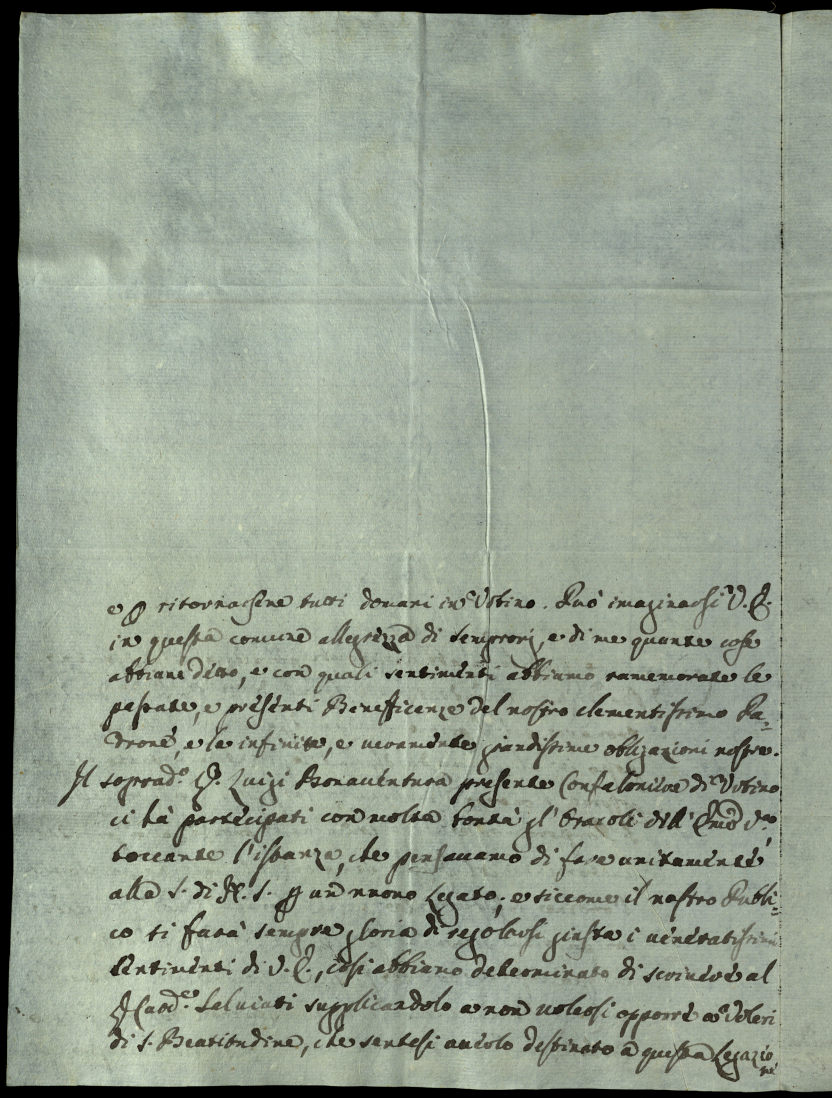 e p ritornarsene tutti domani in Urbino. Può imaginarsi V. E.
in questa comune allegrezza di Semproni, e di me quante cose
abbiane detto, e con quali sentimenti abbiamo ramemorate le
passate, e presenti Beneficenze del nostro clementissimo Pa=
drone, e le infinite, e veramente grandissime obligazioni nostre.
Il soprad.o Luigi Bonaventura presente Confaloniere di Urbino
ci hà partecipati con molta bontà gl' Oracoli dell'
toccante l'istanza, che pensavamo di fare unitamente
alla S. di N. S. p un nuovo Legato; e siccome il nostro Publi=
co si farà sempre gloria di regolarsi giusta i veneratissimi
sentimenti di V. E., così abbiamo determinato di scrivere al
Salviati supplicandolo a non volersi opporre a' Voleri
di S. Beatitudine, che sentesi averlo destinato à questa Legazio
ne